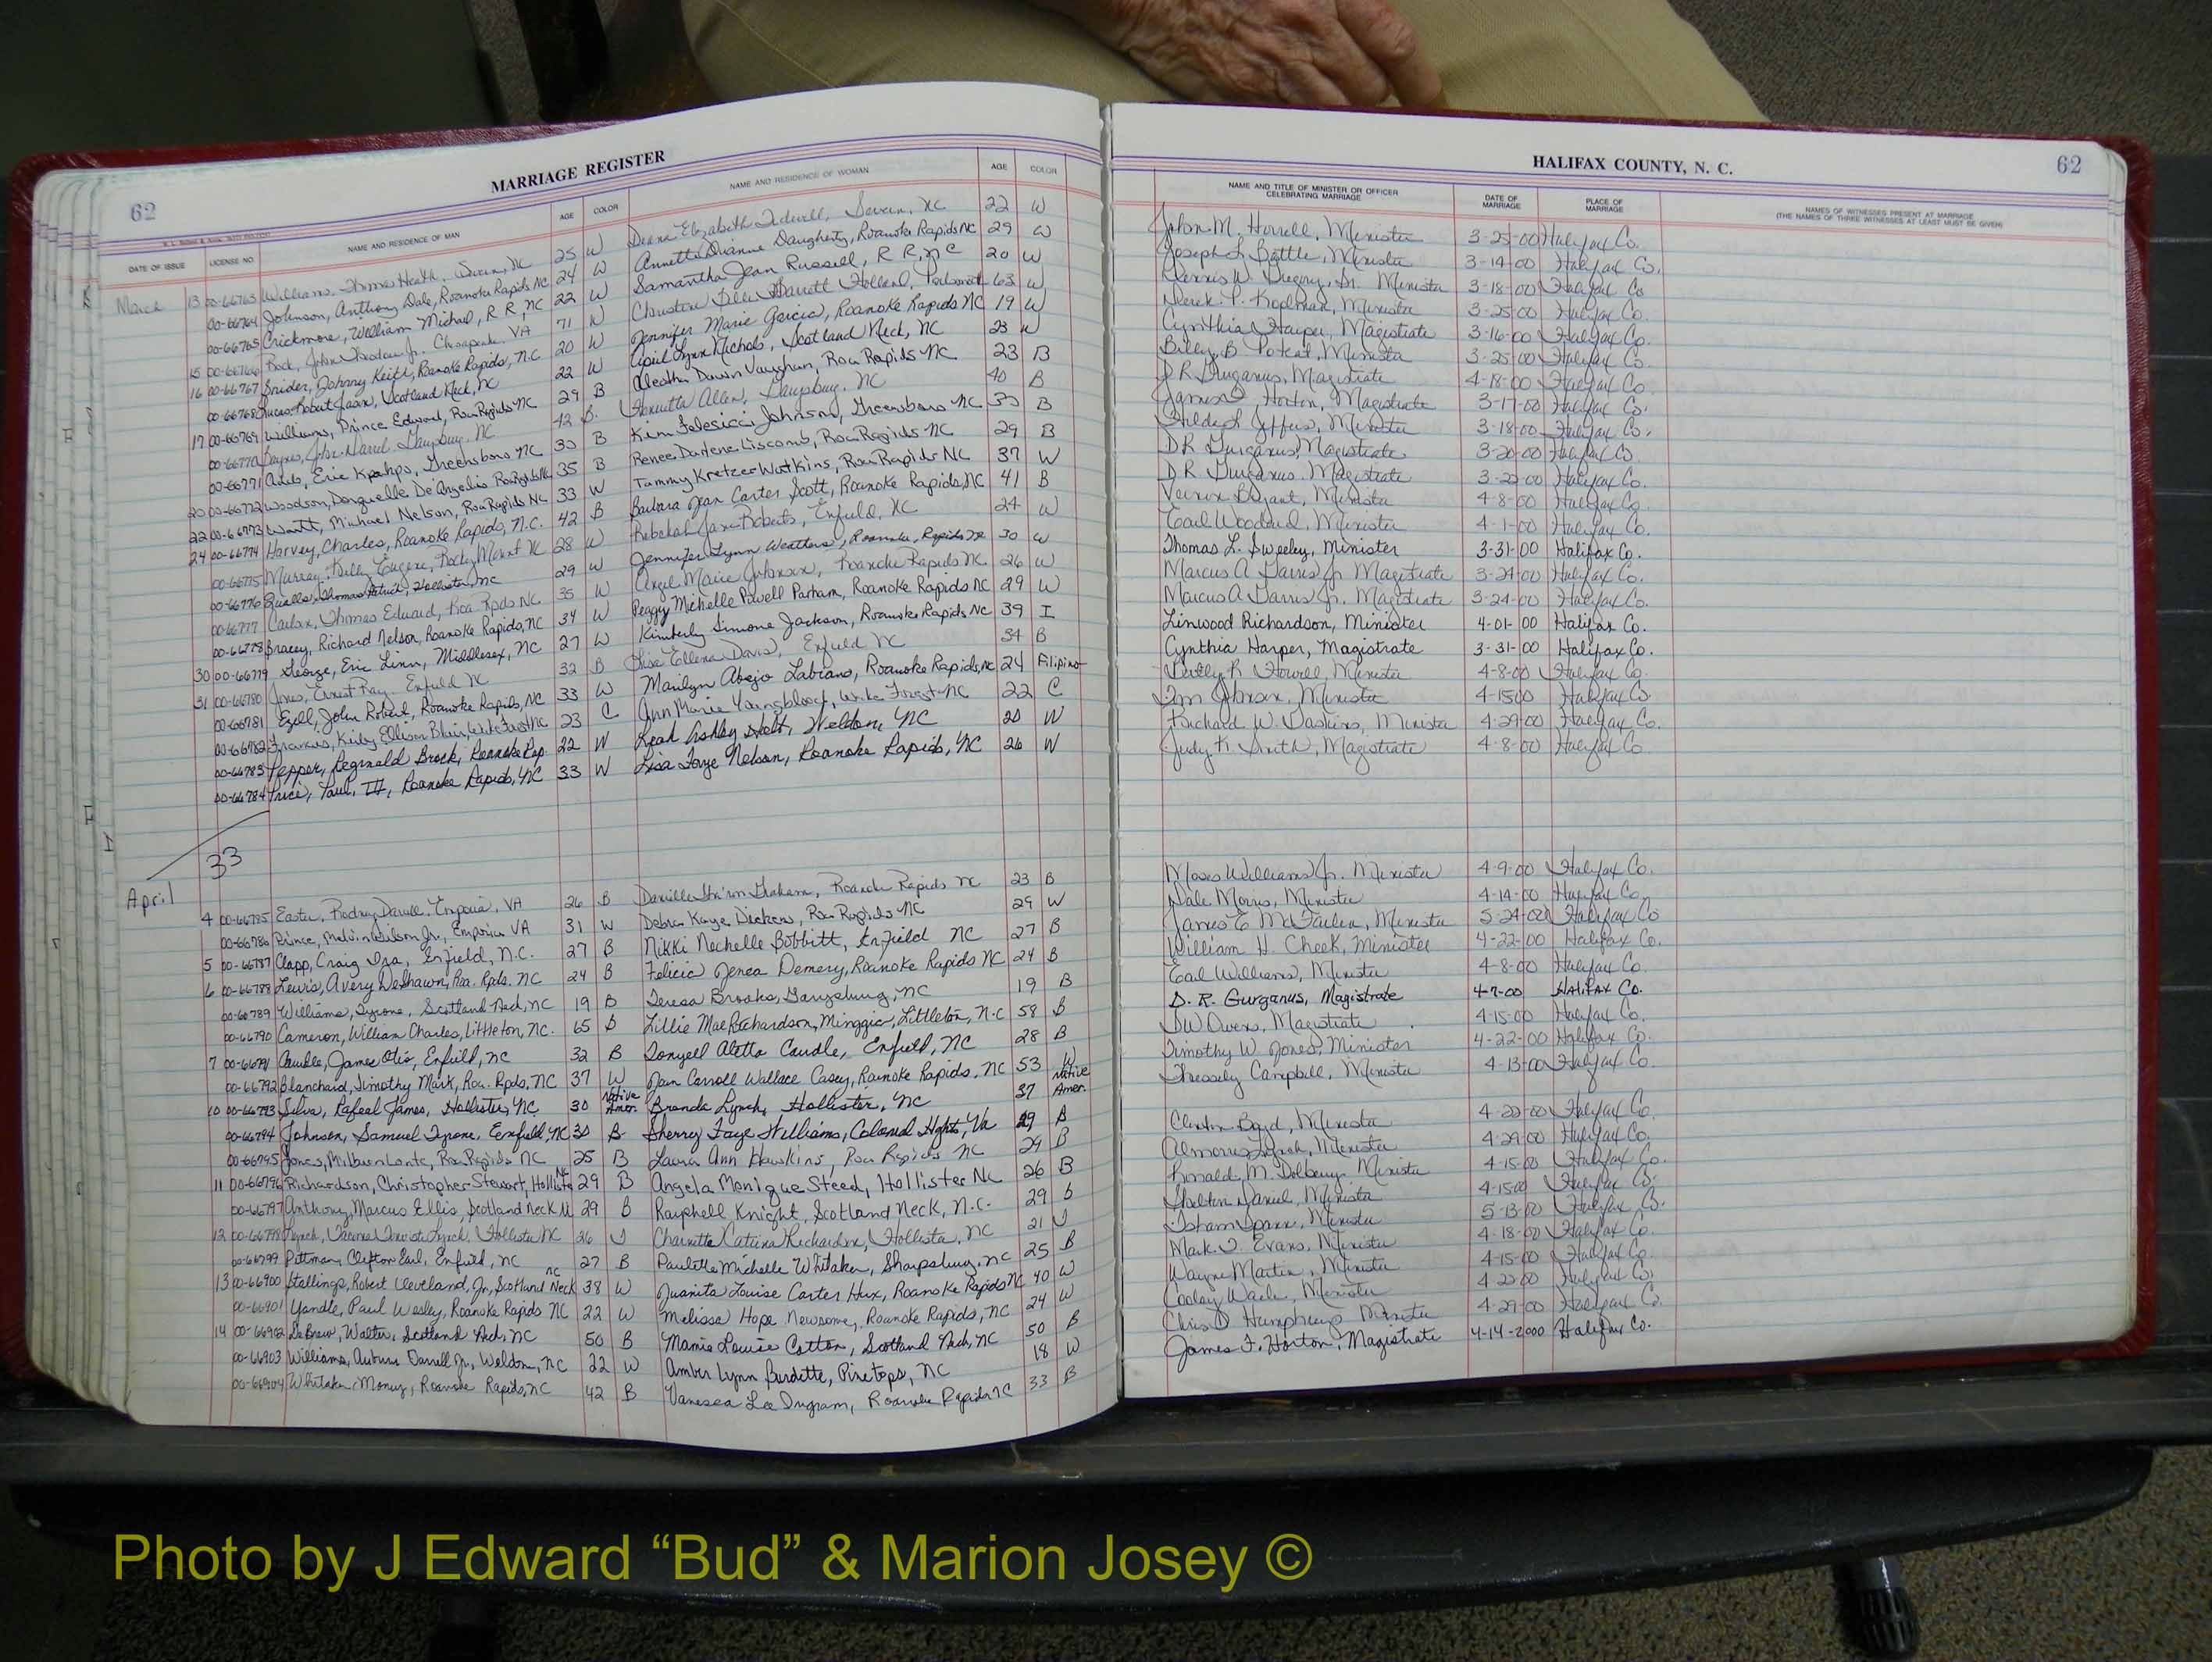 62
MARRIAGE REGISTER
DATE OF ISSUE LICENSE NO. NAME AND RESIDENCE OF MAN AGE COLOR NAME AND RESIDENCE OF WOMAN AGE COLOR
March 13 00-66763 Williams, Thomas Heath, Severn, NC 25 W Elizabeth Tidwell, Severn, NC 22 W
00-66764 Johnson, Anthony Dale, Roanoke Rapids NC 24 W Annette Dianne Daughety, Roanoke Rapids NC 29 W
00-66765 Crickmore, William Michael, R R, NC 22 W Samantha Jean Russell, R R, NC 20 W
15 00-66766 Rock, John Jr. Chesapeake VA 71 W Garrett Holland 63 W
16 00-66767 Snider, Johnny Keith, Roanoke Rapids, N.C. 20 W Jennifer Marie Garcia, Roanoke Rapids NC 19 W
00-66768 Robert Jason, Scotland Neck, NC 22 W April Lynn Nichols, Scotland Neck, NC 23 W
17 00-66769 Williams, Prince Edward, Roa Rapids NC 29 B Aleatha Dawn Vaughan, Roa Rapids NC 23 B
00-66770 Gaysburg, NC 42 B Allen, Gaysburg, NC 40 B
00-66771 Eric Greensboro NC 30 B Kim Johnson, Greensboro NC 30 B
20 00-66772 Woodson, Donguelle De'Angelio 35 B Renee Darlene Liscomb, Roa Rapids NC 29 B
22 00-66773 Watts, Michael Nelson, Roa Rapids NC 33 W Tammy Kretzer Watkins, Roa Rapids NC 37 W
24 00-66774 Harvey, Charles, Roanoke Rapids, N.C. 42 B Barbara Jean Carter Scott, Roanoke Rapids, NC 41 B
00-66775 Murray, Billy Eugene, Rocky Mount NC 28 W Rebekah Jane Roberts, Enfield, NC 24 W
00-66776 Qualls, Thomas Patrick, Hollister, NC 29 W Jennifer Lynn Weathers, Roanoke Rapids 30 W
00-66777 Thomas Edward, Roa Rpds NC 35 W Angel Marie Johnson, Roanoke Rapids NC 26 W
00-66778 Bracey, Richard Nelson, Roanoke Rapids, NC 34 W Peggy Michelle Powell Parham, Roanoke Rapids NC 29 W
30 00-66779 George, Eric Linn, Middlesex, NC 27 W Kimberly Simone Jackson, Roanoke Rapids NC 39 I
31 00-66780 Jones, Ernest Ray Enfield NC 32 B Lisa Ellena Davis, Enfield NC 34 B
00-66781 Ezell, John Robert, Roanoke Rapids, NC 33 W Marilyn Abejo Labiano, Roanoke Rapids, NC 24 Filipino
00-66782 Francus, Kirby Ellison Blair, Wake Forest NC 23 C Ann Marie Youngblood, Wake Forest NC 22 C
00-66783 Pepper, Reginald Brock, Roanoke Rap. 22 W Leah Ashley Holt, Weldon, NC 20 W
00-66784 Price, Paul, III, Roanoke Rapids, NC 33 W Lisa Faye Nelson, Roanoke Rapids, NC 26 W
33
April
4 00-66785 Easter, Rodney Darnell, Emporia, VA 26 B Graham, Roanoke Rapids NC 23 B
00-66786 Prince, Melvin Wilson Jr, Emporia VA 31 W Debra Kaye Dickens, Roa Rapids NC 29 W
5 00-66787 Clapp, Craig Ira, Enfield, N.C. 27 B Nikki Nechelle Bobbitt, Enfield NC 27 B
6 00-66788 Lewis, Avery DeShawn, Roa. Rpds. NC 24 B Felicia Jenea Demery, Roanoke Rapids NC 24 B
00-66789 Williams, Tyrone, Scotland Neck, NC 19 B Teresa Brooks, Garysburg, NC 19 B
00-66790 Cameron, William Charles, Littleton, NC. 65 B Lillie Mae Richardson, Minggia, Littleton, N.C 58 B
7 00-66791 Caudle, James Otis, Enfield, NC 32 B Sonyell Aletta Caudle, Enfield, NC 28 B
00-66792 Blanchard, Timothy Mark, Roa. Rpds, NC 37 W Jan Carroll Wallace Casey, Roanoke Rapids, NC 53 W
10 00-66793 Silva, Rafeal James, Hollister, NC 30 Native Amer. Brenda Lynch, Hollister, NC 37 Native Amer.
00-66794 Johnson, Samuel Tyrone, Eenfield, NC 30 B Sherry Faye Williams, Colonial Hghts, Va 29 B
00-66795 Jones, Milburn Lonte, Roa Rapids NC 25 B Laura Ann Hawkins, Roa Rapids NC 29 B
11 00-66796 Richardson, Christopher Stewart, Hollister NC 29 B Angela Monique Steed, Hollister NC 26 B
00-66797 Anthony, Marcus Ellis, Scotland Neck 29 B Rayphell Knight, Scotland Neck, N.C. 29 B
12 00-66798 Lynch, Hollister NC 26 Catrina Richardson, Hollister, NC 21
00-66799 Pittman, Clifton Earl, Enfield, NC 27 B Paulette Michelle Whitaker, Sharpsburg, NC 25 B
13 00-66900 Stallings, Robert Cleveland, Jr, Scotland Neck NC 38 W Juanita Louise Carter Hux, Roanoke Rapids NC 40 W
00-66901 Yandle, Paul Wesley, Roanoke Rapids NC 22 W Melissa Hope Newsome, Roanoke Rapids, NC 24 W
14 00-66902 DeBrew, Walter, Scotland Neck, NC 50 B Mamie Louise Cotton, Scotland Neck, NC 50 B
00-66903 Williams, Darrell Jr, Weldon, NC 22 W Amber Lynn Burdette, Pinetops, NC 18 W
00-66904 Whitaker, Money, Roanoke Rapids, NC 42 B Vanessa Lee Ingram, Roanoke Rapids NC 33 B
HALIFAX COUNTY, N. C.
62
NAME AND TITLE OF MINISTER OR OFFICER CELEBRATING MARRIAGE DATE OF MARRIAGE PLACE OF MARRIAGE NAMES OF WITNESSES PRESENT AT MARRIAGE (THE NAMES OF THREE WITNESSES AT LEAST MUST BE GIVEN)
John M. Horrell, Minister 3-25-00 Halifax Co.
Joseph L Battle, Minister 3-14-00 Halifax Co.
Dennis W. Gregory, Sr. Minister 3-18-00 Halifax Co
Derek P. Minister 3-25-00 Halifax Co.
Cynthia Harper, Magistrate 3-16-00 Halifax Co.
Billy B Poteat, Minister 3-25-00 Halifax Co.
D R Gurganus, Magistrate 4-18-00 Halifax Co.
James Horton, Magistrate 3-17-00 Halifax Co.
Hilda L Jeffers, Minister 3-18-00 Halifax Co.
D R Gurganus, Magistrate 3-20-00 Halifax Co.
D R Gurganus, Magistrate 3-22-00 Halifax Co.
Bryant, Minister 4-8-00 Halifax Co.
Earl Woodard, Minister 4-1-00 Halifax Co.
Thomas L. Sweeley, Minister 3-31-00 Halifax Co.
Marcus A Garris Jr Magistrate 3-24-00 Halifax Co.
Marcus A Garris Jr. Magistrate 3-24-00 Halifax Co.
Linwood Richardson, Minister 4-01-00 Halifax Co.
Cynthia Harper, Magistrate 3-31-00 Halifax Co.
R. Howell, Minister 4-8-00 Halifax Co.
Tim Johnson, Minister 4-15-00 Halifax Co.
Richard W. Daskins, Minister 4-29-00 Halifax Co.
Judy K Smith, Magistrate 4-8-00 Halifax Co.
Moses Williams Jr. Minister 4-9-00 Halifax Co.
Dale Morris, Minister 4-14-00 Halifax Co.
James E McFaden, Minister 5-24-00 Halifax Co
William H. Cheek, Minister 4-22-00 Halifax Co.
Earl Williams, Minister 4-8-00 Halifax Co.
D. R. Gurganus, Magistrate 4-7-00 HALIFAX CO.
D W Owens, Magistrate 4-15-00 Halifax Co.
Timothy W Jones, Minister 4-22-00 Halifax Co.
Campbell, Minister 4-13-00 Halifax Co.
Clinton Boyd, Minister 4-22-00 Halifax Co.
Lynch, Minister 4-29-00 Halifax Co.
Ronald M. Minister 4-15-00 Halifax Co.
Shelton Daniel, Minister 4-15-00 Halifax Co.
Isham Minister 5-13-00 Halifax Co.
Mark Evans, Minister 4-18-00 Halifax Co.
Wayne Martin, Minister 4-15-00 Halifax Co.
Minister 4-22-00 Halifax Co.
Chris D Humphreys Minister 4-29-00 Halifax Co.
James F. Horton, Magistrate 4-14-2000 Halifax Co.
Photo by J Edward “Bud” & Marion Josey ©